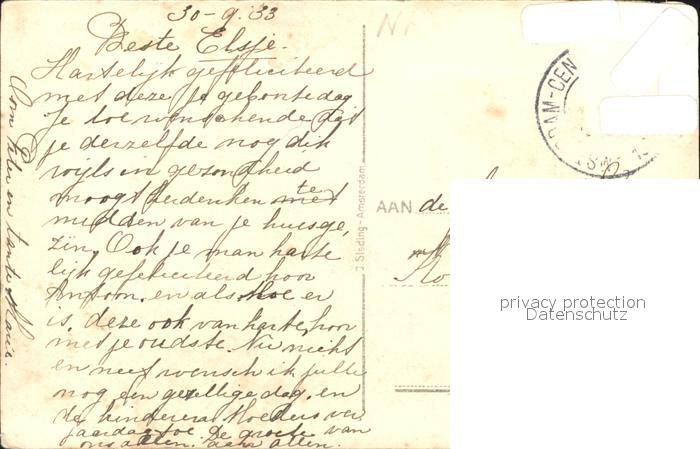 30-9.'33
Beste Elsje.
Hartelijk gefeliciteerd
met deze je geboortedag
je toewenschende dat
je derzelfde nog dik
wijls in gezondheid
moogt herdenken te
midden van je huisge,
zin, Ook je man harte
lijk gefeliciteerd hoor
Antoon. en als moe er
is, deze ook van harte, hoor
met je oudste. Nu nicht
en neef wensch ik jullie
nog een gezellige dag, en
de kinderen Moeders ver,
jaardag toe. De groete van
ons allen. aan allen.
Oom Peter en tante Marie.
J. Sleding - Amsterdam
DAM-CEN
AAN de
privacy protection
Datenschutz